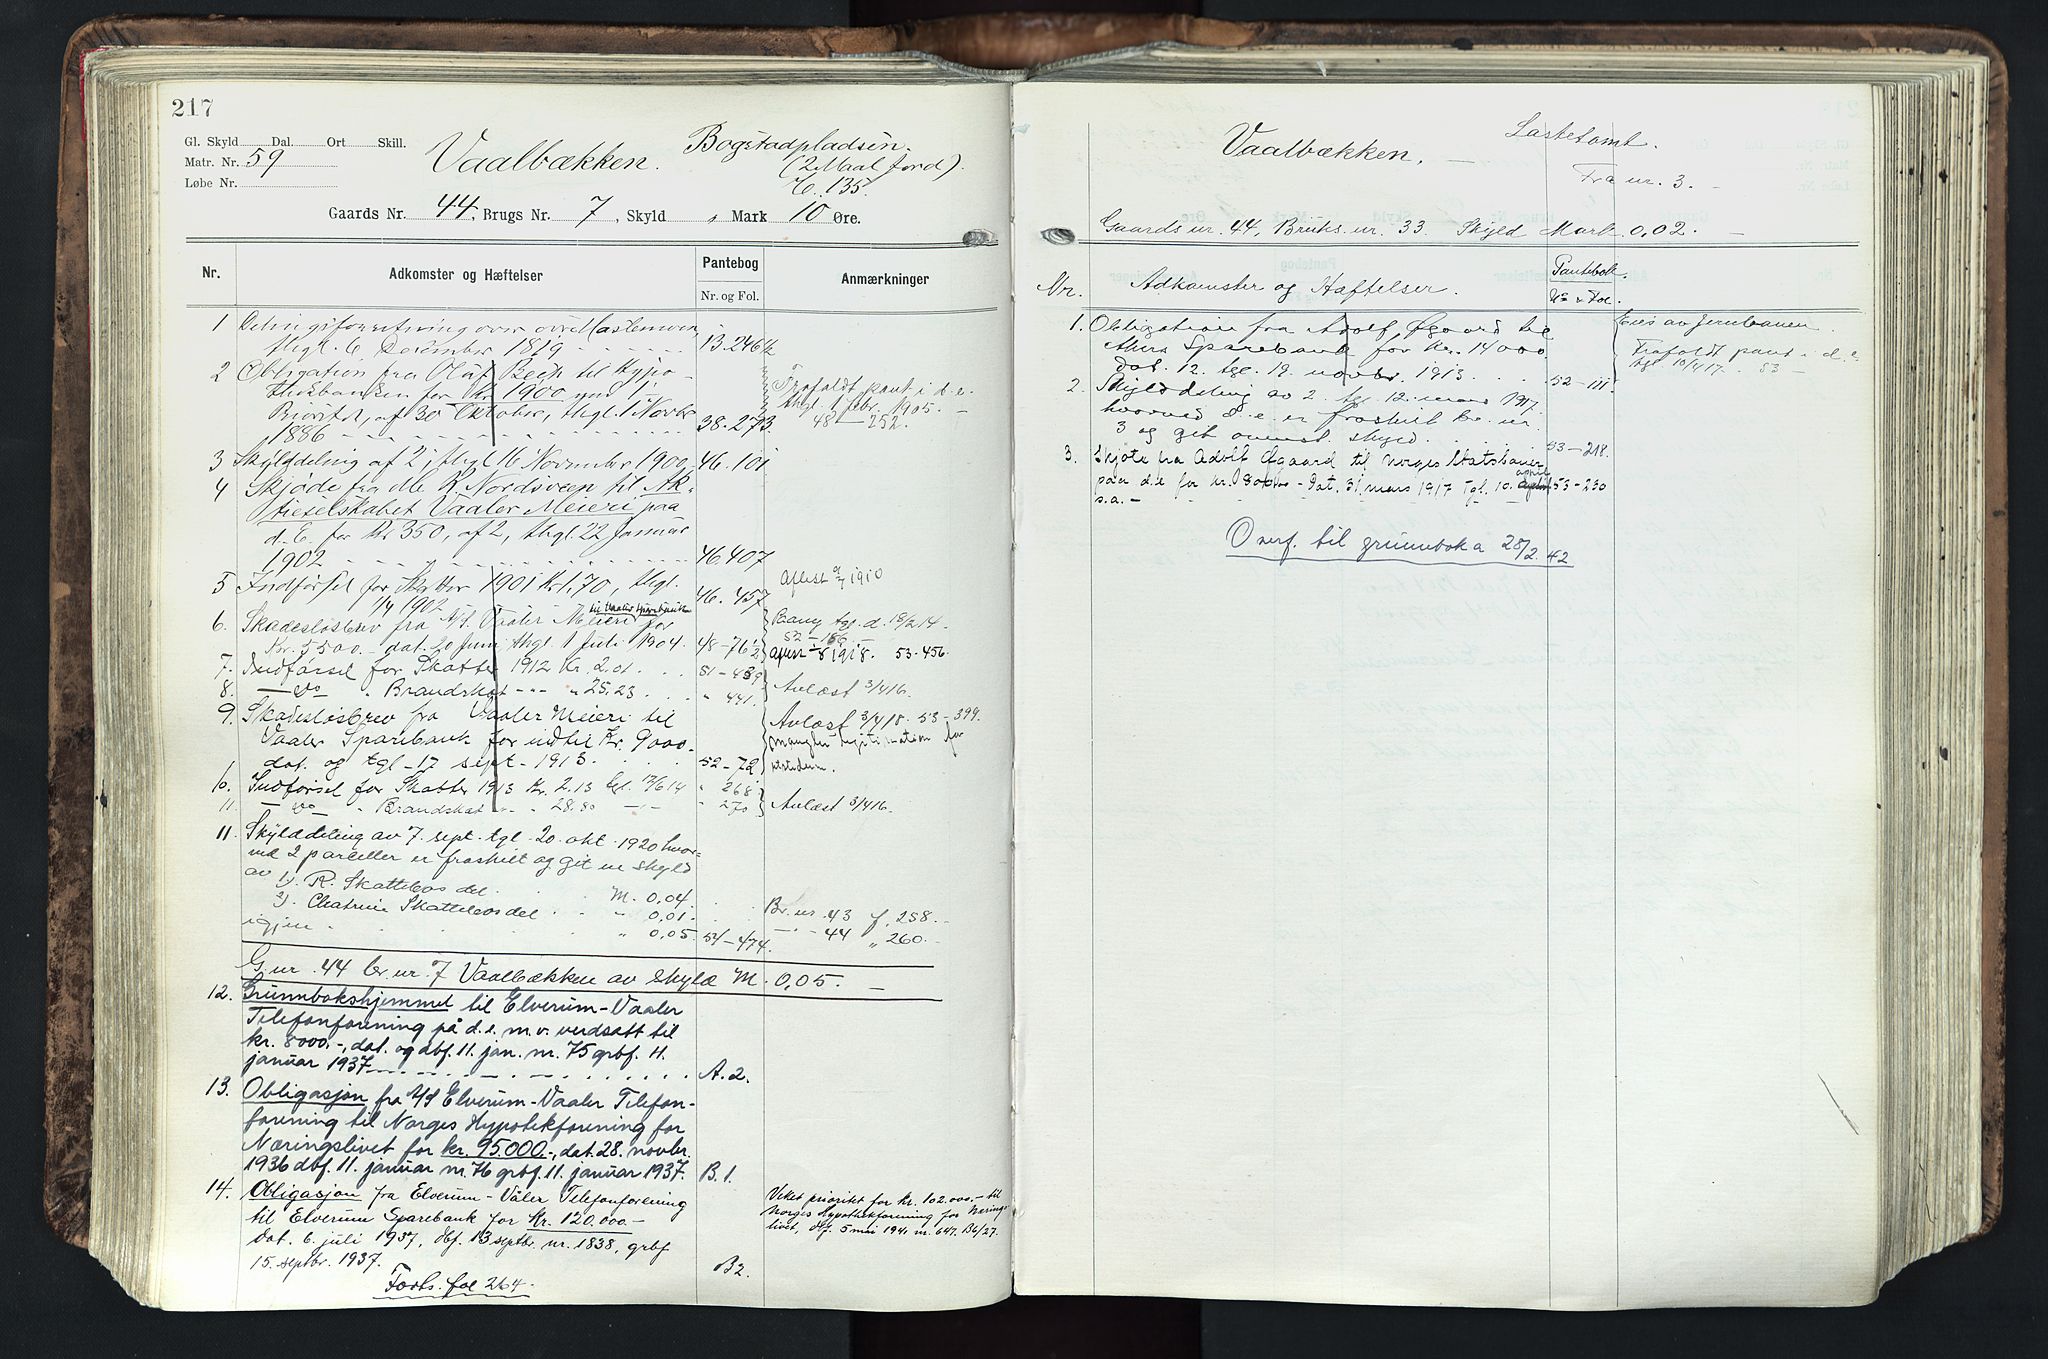 217
Gl. Skyld Dal. Ort Skill.
Matr. Nr. 59
Løbe Nr.
Vaalbækken.
Bogstadpladsen.
(2 Maal jord).
Gaards Nr. 44, Brugs Nr. 7, Skyld , Mark 10 Øre.
Nr.
Adkomster og Hæftelser
Pantebog
Nr. og Fol.
Anmærkninger
1 Delingsforretning over
thgl. 6 December 1819 13.246½
2 Obligation fra Oluf Beck til Hypo-
thekbanken for Kr 1900
Prioritet, af 30 Oktober, thgl. 1 Novbr
1886 38.273.
Frafaldt pant i d. e.
thgl. 1 febr. 1905.
48 252.
3 Skylddeling af 2, thgl 16 November 1900 46.101
4 Skjøde fra Ole K. Nordsveen til Ak-
tieselskabet Vaaler Meieri paa
d. E. for Kr 350, af 2, thgl. 22 Januar
1902 46.407
5 Indførsel for Skatter 1901 Kr 1,70, thgl.
1/4 1902 46.457
Aflest 1910
6. Skadesløsbrev fra A/S Vaaler Meieri til Vaaler Sparebank for
Kr. 5500.- dat. 20 Juni thgl 1 Juli 1904. 48-76½
tgl. d. 19/2 14.
52-186
1918. 53.456.
7. Indførsel for Skatter 1912 Kr. 2.01. 51-439
8. do " Brandskat " 25.23 " 441.
Avlæst 3/4 16.
9. Skadesløsbrev fra Vaaler Meieri til
Vaaler Sparebank for indtil Kr. 9000.-
dat. og tgl. 17 sept. 1913. 52-72
Avlæst 3/4 18. 53-399.
mangler legitimation for
10. Indførsel for Skatter 1913 Kr. 2.13 tgl. 17/6 14 " 268
11. do " Brandskat " 28.80 " 270
Avlæst 3/4 16.
11. Skylddeling av 7. sept. tgl. 20. okt. 1920 hvor-
ved 2 parceller er fraskilt og git ny skyld
av 1). R. Skattebos del. M. 0,04.
2). Chatrine Skattebos del " 0,01.
igjen " 0,05. 54-474.
Br. nr. 43 f. 258.
44 " 260.
G. nr. 44 br. nr. 7 Vaalbækken av skyld M. 0,05.
12. Grunnbokshjemmel til Elverum-Vaaler
Telefonforening på d. e. m. v. verdsatt til
kr. 8000.-, dat. og dbf. 11. jan. nr. 75 grbf. 11.
januar 1937 A.2.
13. Obligasjon fra A/S Elverum-Vaaler Telefon-
forening til Norges Hypotekforening for
Næringslivet for kr. 95.000.-, dat. 28. novbr.
1936 dbf. 11. januar nr. 76 grbf. 11. januar 1937. B.1.
14. Obligasjon fra Elverum-Våler Telefonforening
til Elverum Sparebank for Kr. 120.000.-
dat. 6. juli 1937, dbf. 13 septbr. nr. 1838, grbf
15. septbr. 1937. B2.
Veket prioritet for kr. 102.000.- til
Norges Hypothekforening for Nærings-
livet, dbf. 5 mai 1941 nr. 647. B6/27.
Forts. fol 264.
Vaalbækken.
Lastetomt.
Fra nr. 3.
Gaards nr. 44, Bruks. nr. 33. Skyld Mark 0,02.
Nr. Adkomster og Hæftelser.
Pantebok
Nr. & Fol.
1. Obligation fra Adolf Øgaard til
Sparebank for Kr. 14000
Dat. 12. tgl. 19. novbr. 1913. 52-111.
Eies av Jernbanen.
Frafaldt pant i d. e.
tgl 10/4 17. 53
2. Skylddeling av 2. tgl. 12. mars 1917.
hvorved d. e. er fraskilt br. nr.
3 og git ovenst. skyld. 53-218.
3. Skjøte fra Adolf Øgaard til Norges Statsbaner
paa d.e for kr. - Dat. 31 mars 1917 Tgl. 10. april 53-230
s.a.
Overf. til grunnboka 28/2. 42